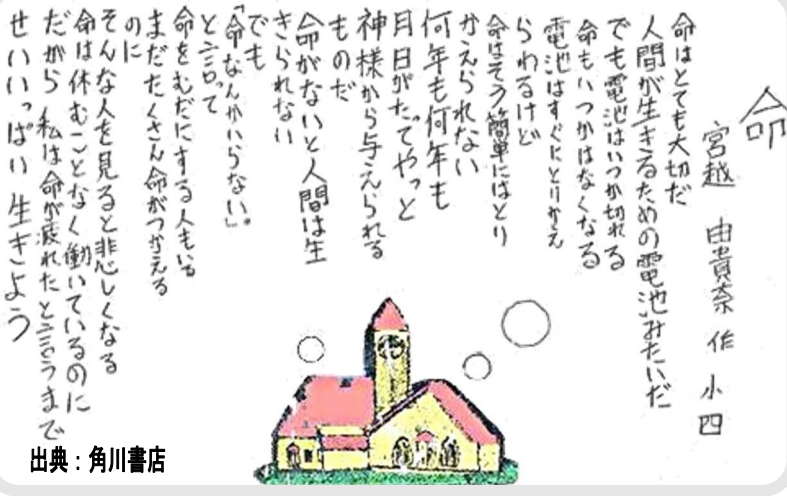 命
宮越 由貴奈 作 小四
命はとても大切だ
人間が生きるための電池みたいだ
でも電池はいつか切れる
命もいつかはなくなる
電池はすぐにとりかえ
られるけど
命はそう簡単にはとり
かえられない
何年も何年も
月日がたってやっと
神様から与えられる
ものだ
命がないと人間は生
きられない
でも
「命なんかいらない。」
と言って
命をむだにする人もいる
まだたくさん命がつかえる
のに
そんな人を見ると悲しくなる
命は休むことなく働いているのに
だから 私は命が疲れたと言うまで
せいいっぱい生きよう
出典：角川書店